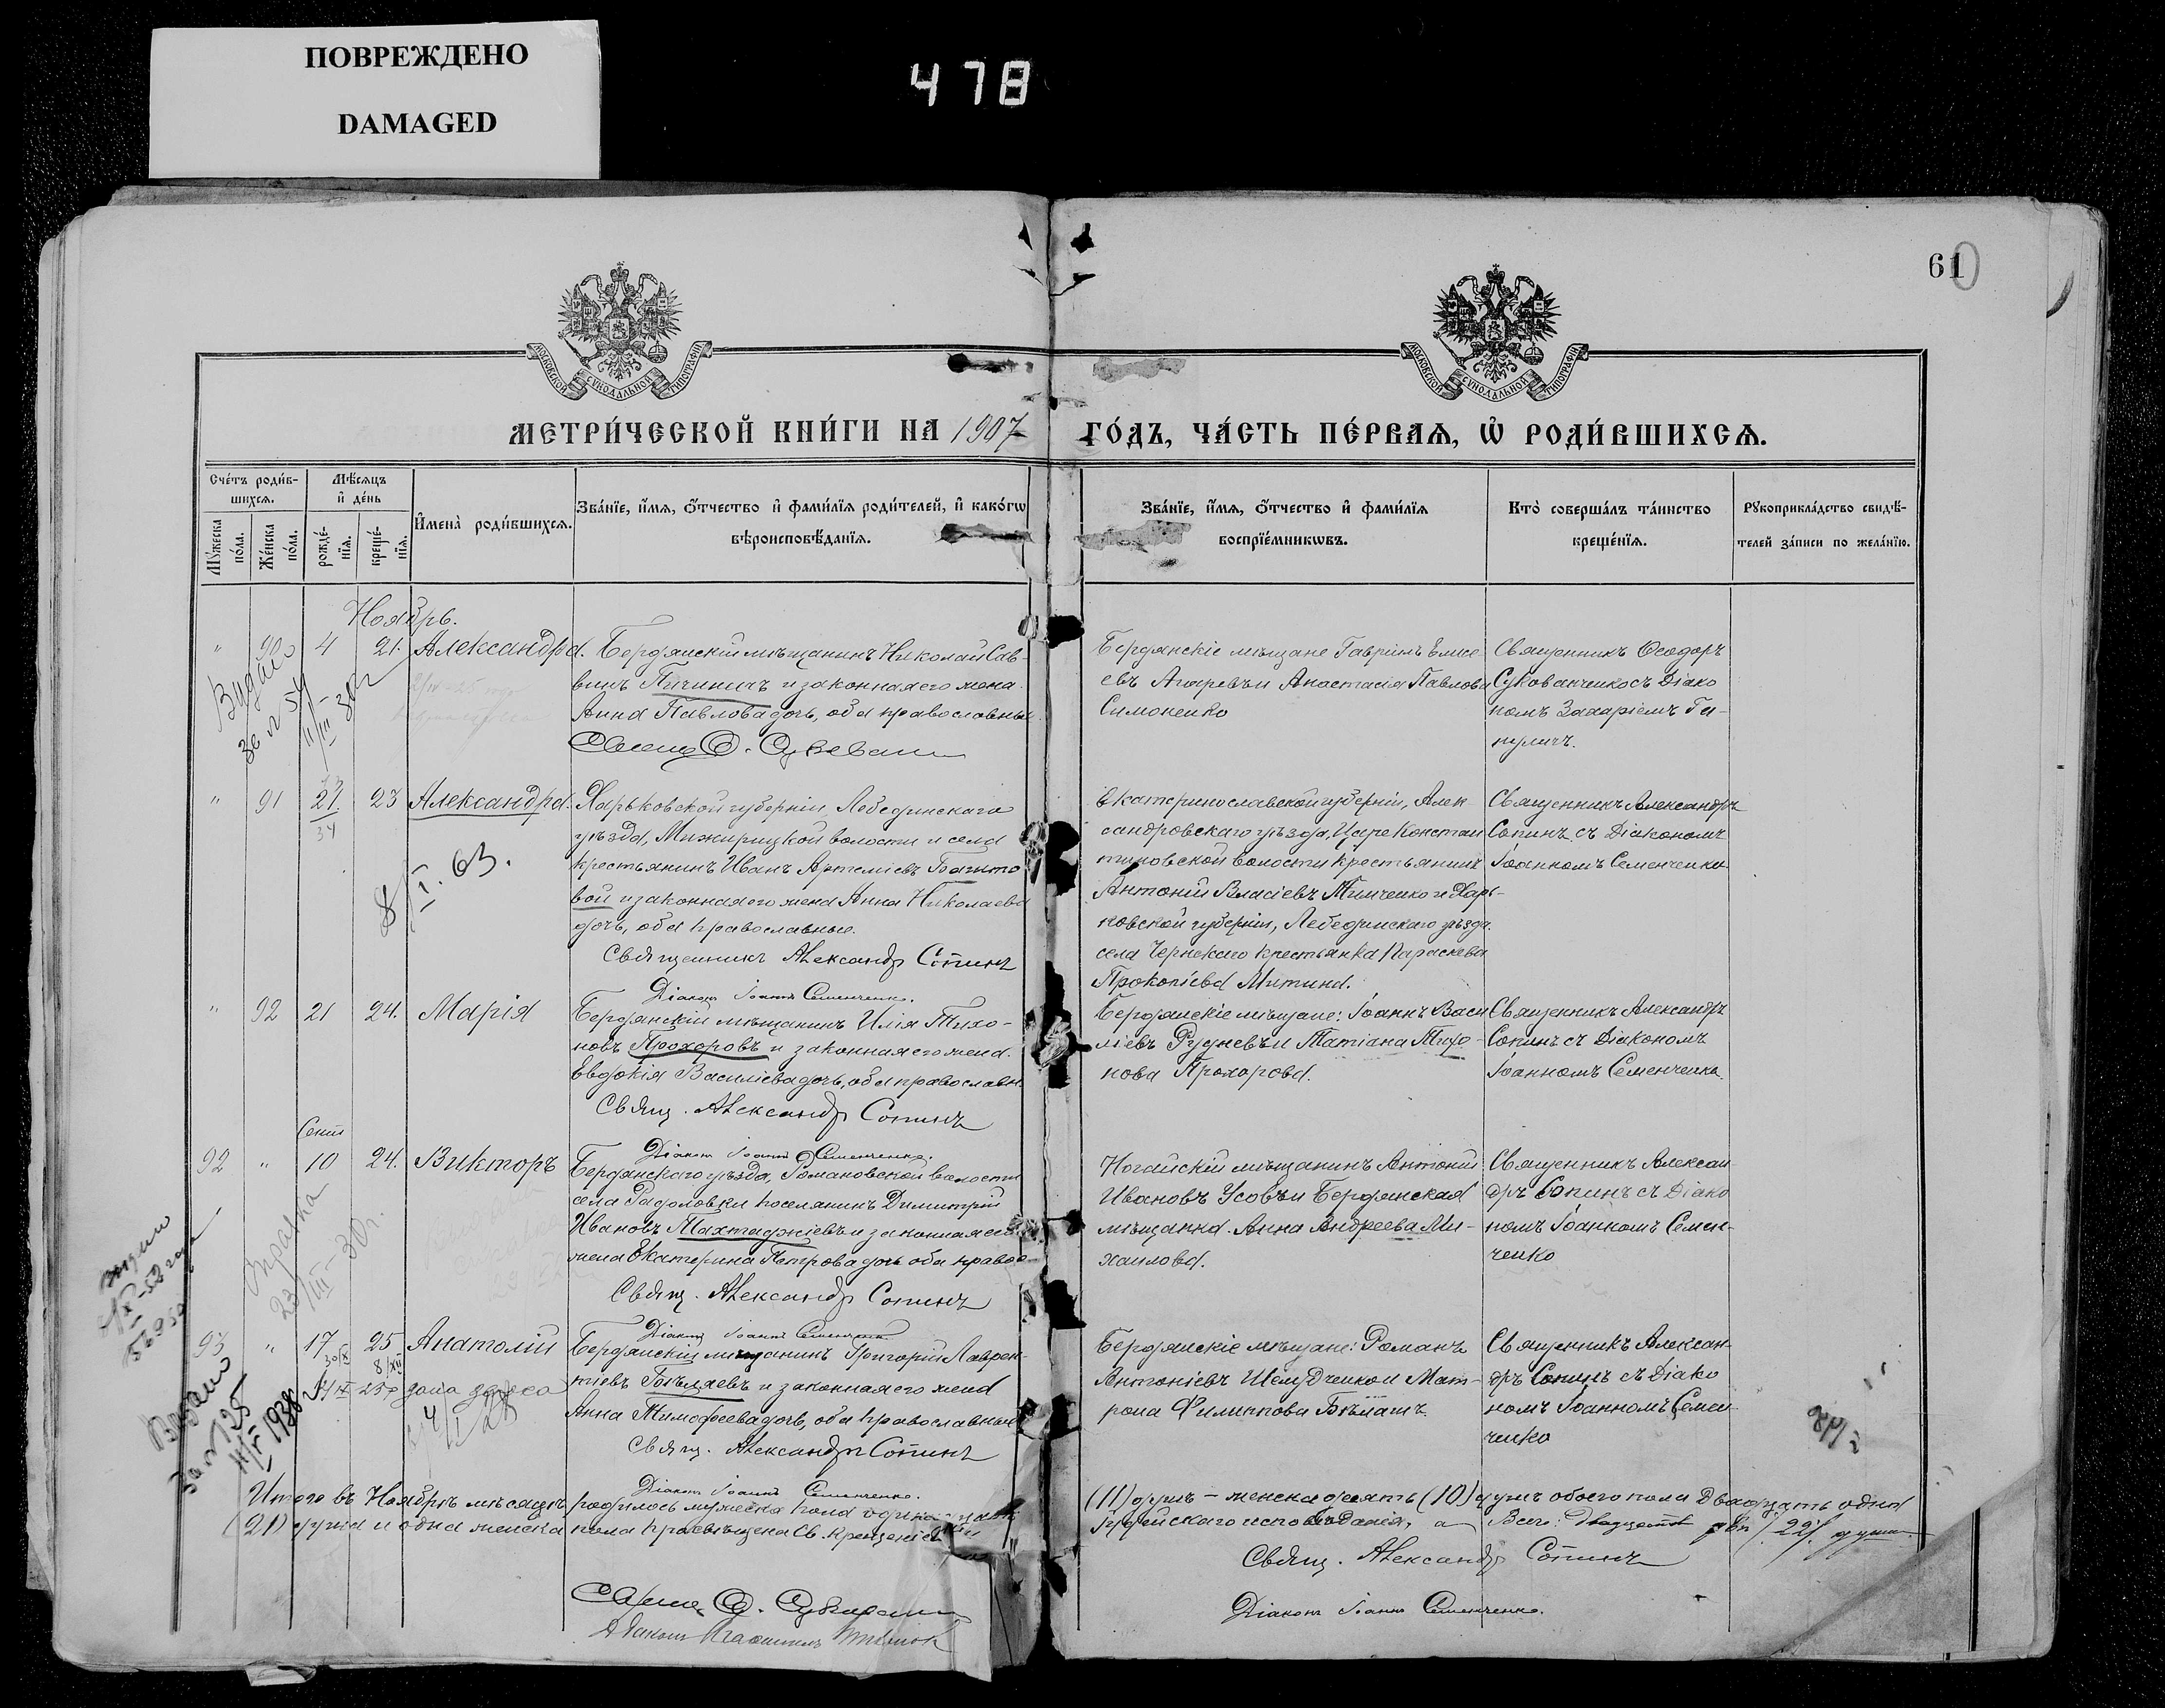 ПОВРЕЖДЕНО
DAMAGED
478
61
МОСКОВСКОЙ СУНОДАЛЬНОЙ ТИПОГРАФІИ
МОСКОВСКОЙ СУНОДАЛЬНОЙ ТИПОГРАФІИ
МЕТРИ́ЧЕСКОЙ КНИ́ГИ НА 1907 ГО́ДЪ, ЧА́СТЬ ПЕ́РВАѦ, Ѡ҆ РОДИ́ВШИХСѦ.
Сче́тъ роди́в-
шихсѧ.
Мѣ́сѧцъ
и҆ де́нь
Мꙋ́жеска по́ла.
Же́нска по́ла.
рожде́-нїѧ.
креще́-нїѧ.
И҆мена̀ роди́вшихсѧ.
Зва́нїе, и҆́мѧ, ѻ҆́тчество и҆ фами́лїѧ роди́телей, и҆ како́гѡ
вѣроисповѣ́данїѧ.
Зва́нїе, и҆́мѧ, ѻ҆́тчество и҆ фами́лїѧ
воспрїе́мникѡвъ.
Кто̀ соверша́лъ та́инство
креще́нїѧ.
Рꙋкоприкла́дство свидѣ́-
телей за́писи по жела́нїю.
Ноябрь.
" 90 4 21. Александра.
Бердянскій мѣщанинъ Николай Сав-
винъ Пичиничъ и законная его жена
Анна Павлова дочь, оба православные
Бердянскіе мѣщане Гавріилъ Елисе
евъ Агаревъ и Анастасія Павлова
Симоненко
Священникъ Ѳеодоръ
Сукованченко съ Діако
номъ Захаріемъ Ги-
Выдано
за № 54
" 91 21 23 Александра.
34
8/I. 63.
Харьковской губерніи, Лебединскаго
уѣзда, Межирицкой волости и села
крестьянинъ Иванъ Артеміевъ Богато
вой и законная его жена Анна Николаева
дочь, оба православные.
Священникъ Александръ Сопинъ
Діаконъ Іоаннъ Семенченко.
Екатеринославской губерніи, Алек-
сандровскаго уѣзда, Царе Констан
тиновской волости крестьянинъ
Антоній Власіевъ Тимченко и Харь-
ковской губерніи, Лебединскаго уѣзда.
села Чернскаго крестьянка Параскева
Прокопіева Митина.
Священникъ Александръ
Сопинъ съ Діакономъ
Іоанномъ Семенченко.
" 92 21 24. Марія
Бердянскій мѣщанинъ Илія Тихо-
новъ Прохоровъ и законная его жена.
Евдокія Василіева дочь, оба православн.
Свящ. Александръ Сопинъ
Діаконъ Іоаннъ Семенченко.
Бердянскіе мѣщане: Іоаннъ Васи
ліевъ Рудневъ и Татіана Тихо-
нова Прохорова.
Священникъ Александръ
Сопинъ съ Діакономъ
Іоанномъ Семенченко.
Сент
92 " 10 24. Викторъ
Бердянскаго уѣзда, Романовской волости
села Радоловки поселянинъ Димитрій
Ивановъ Тахтаджіевъ и законная его
жена Екатерина Петрова дочь оба правос
Свящ. Александръ Сопинъ
Діаконъ Іоаннъ Семенченко
Ногайскій мѣщанинъ Антоній
Ивановъ Усовъ и Бердянская
мѣщанка Анна Андреева Ми-
хаилова.
Священникъ Алексан
дръ Сопинъ съ Діако
номъ Іоанномъ Семен-
ченко
справка
23/III 30 г.
93 " 17 25 Анатолій
Бердянскій мѣщанинъ Григорій Лаврен-
тіевъ Гонѣдяевъ и законная его жена
Анна Тимофеева дочь, оба православные
Свящ. Александръ Сопинъ
Діаконъ Іоаннъ Семенченко.
Бердянскіе мѣщане: Романъ
Антоніевъ Шелудченко и Мат-
рона Филиппова Бѣлашъ
Священникъ Алексан-
дръ Сопинъ съ Діако
номъ Іоанномъ Семен-
ченко
Выдано
за № 125
Итого въ Ноябрѣ мѣсяцѣ родилось мужеска пола одиннадцать (11) душъ - женска десять (10) душъ обоего пола Двадцать одна
(21) душа и одна женска пола просвѣщена Св. крещеніемъ іудейскаго исповѣданія, а Всего: двадцать двѣ /22/ души.
Свящ. Александръ Сопинъ
Діаконъ Іоаннъ Семенченко.